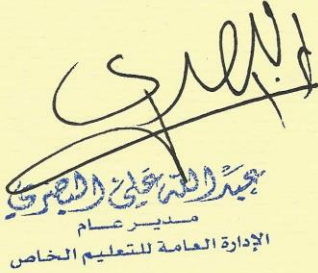 عبد الله علي البصري
مدير عام
الإدارة العامة للتعليم الخاص